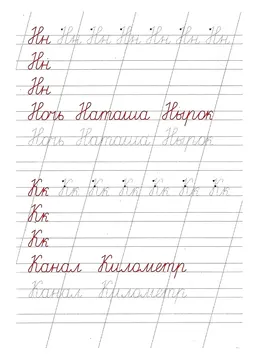 Нн Нн Нн Нн Нн Нн Нн
Нн
Нн
Ночь Наташа Нырок
Ночь Наташа Нырок
Кк Кк Кк Кк Кк Кк Кк
Кк
Кк
Канал Километр
Канал Километр